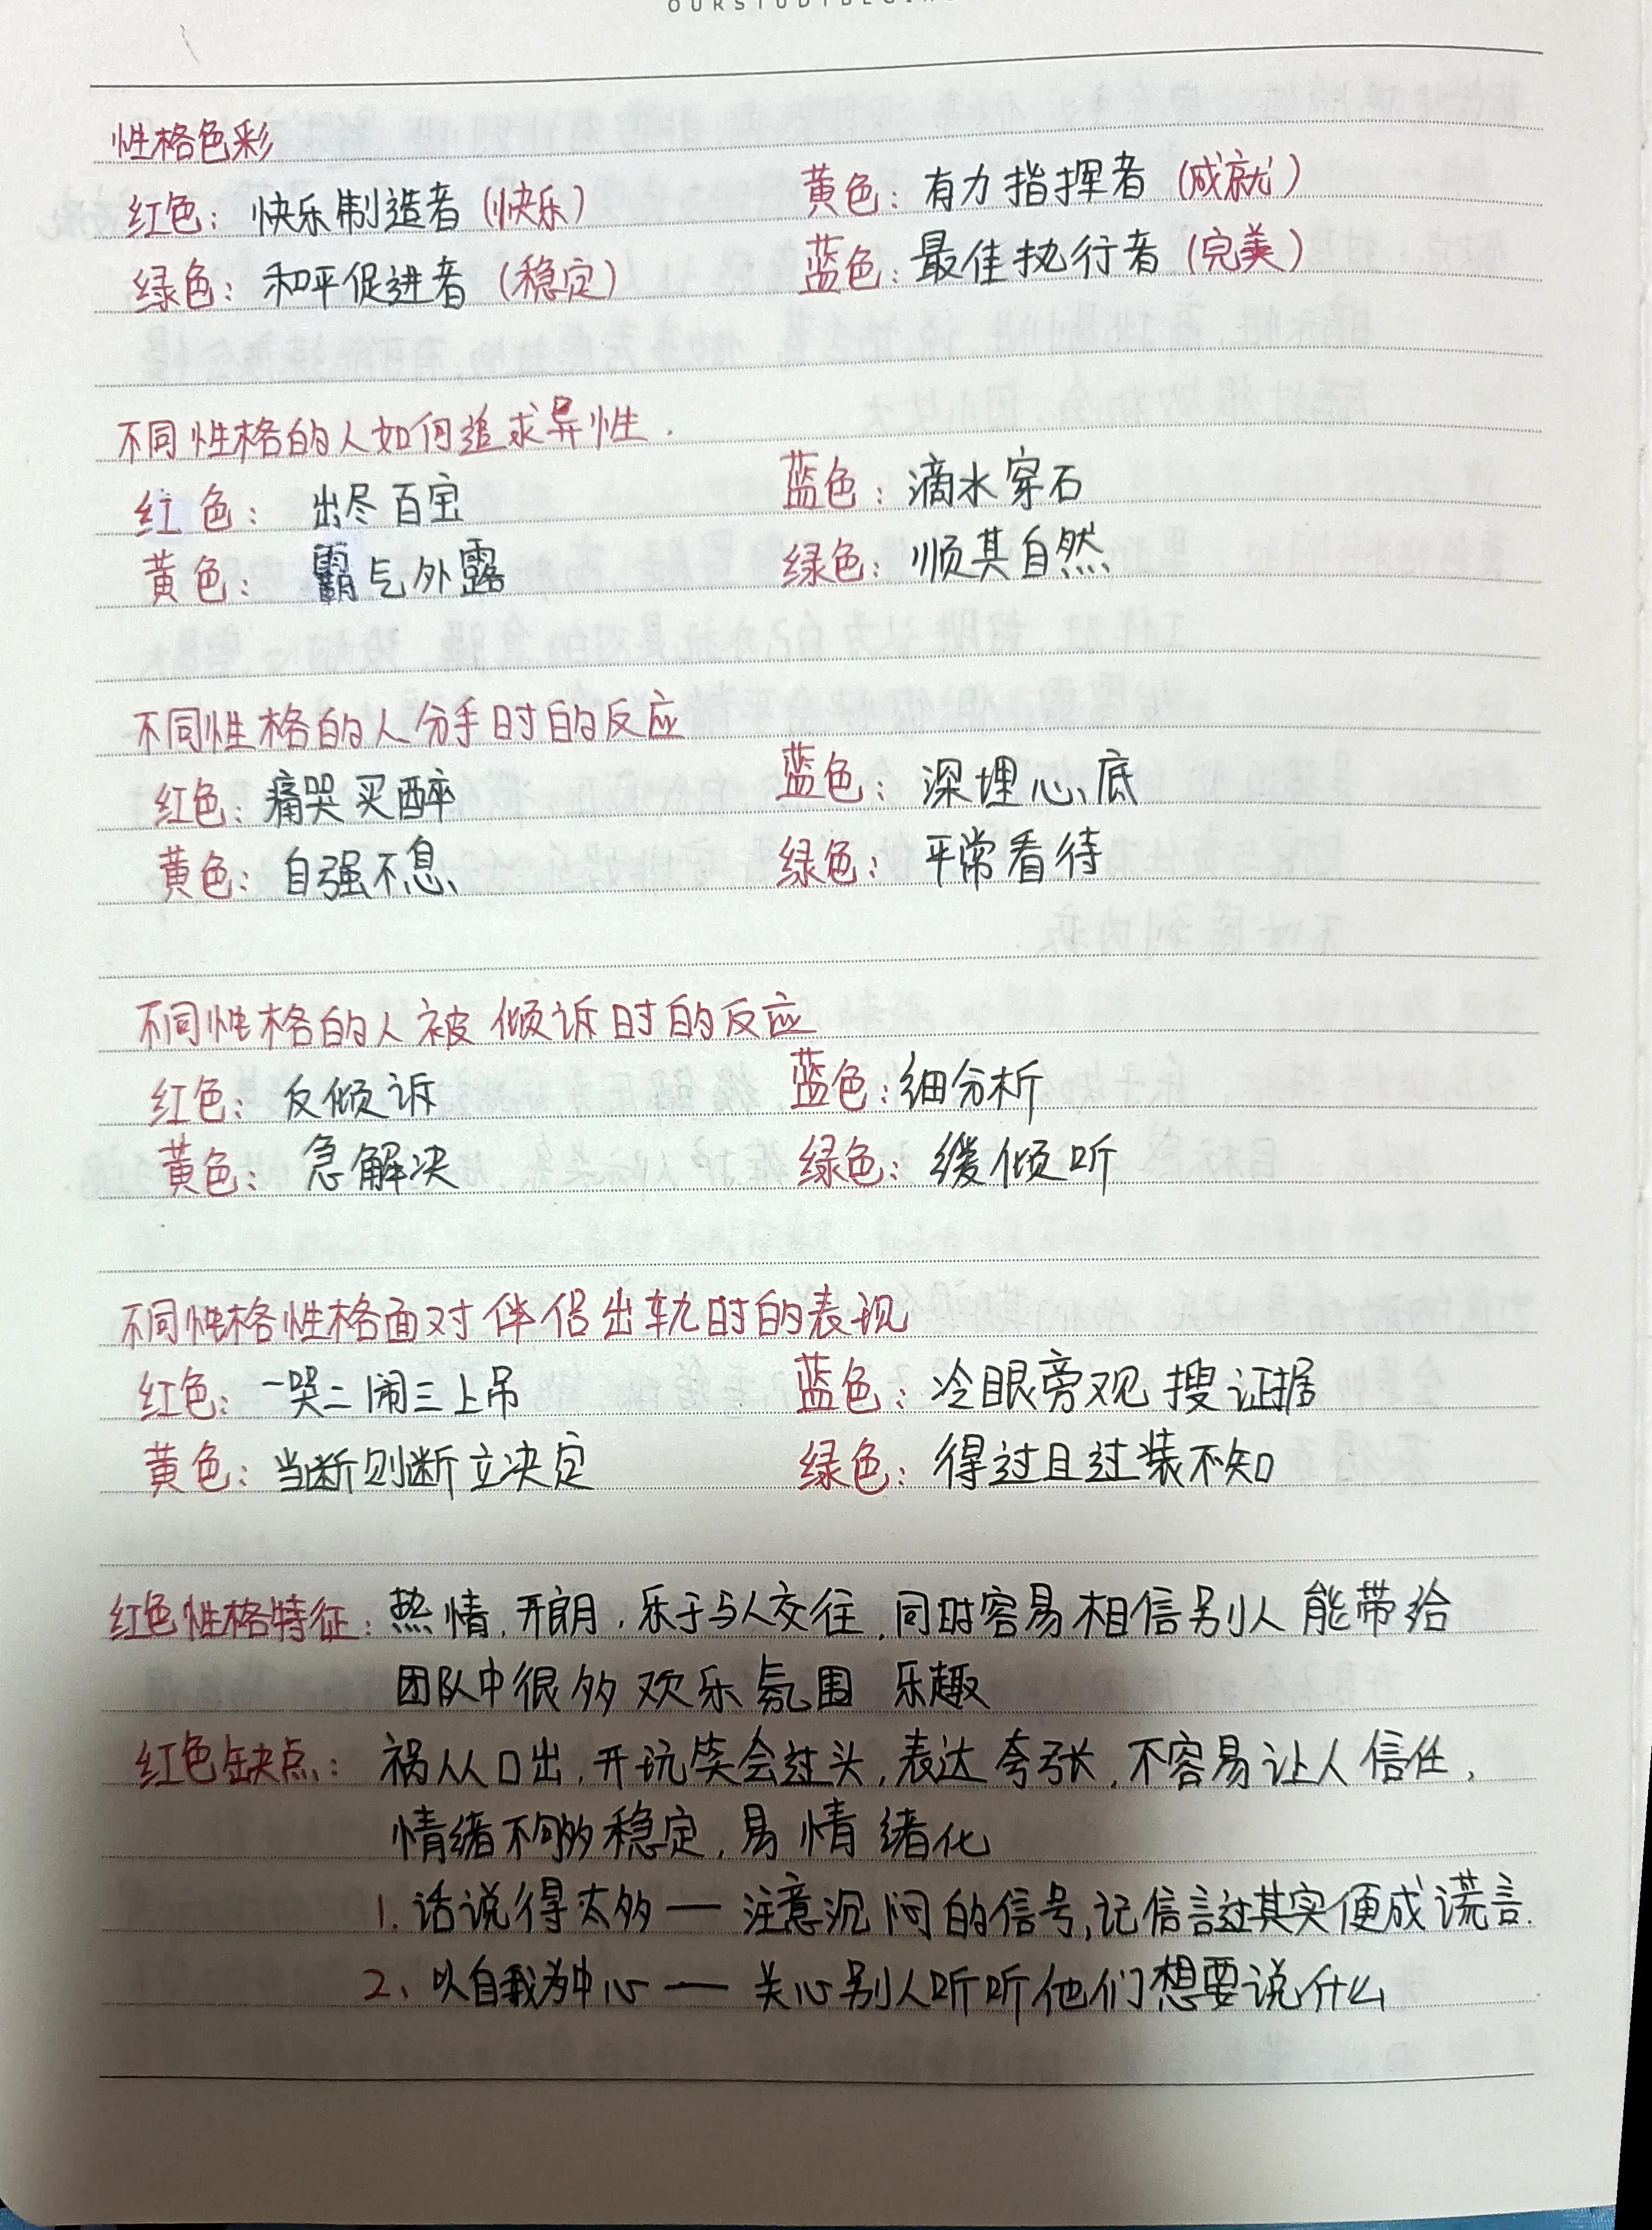 性格色彩
红色：快乐制造者（快乐） 黄色：有力指挥者（成就）
绿色：和平促进者（稳定） 蓝色：最佳执行者（完美）
不同性格的人如何追求异性.
红色： 出尽百宝 蓝色：滴水穿石
黄色： 霸气外露 绿色：顺其自然
不同性格的人分手时的反应
红色：痛哭买醉 蓝色：深埋心底
黄色：自强不息 绿色：平常看待
不同性格的人被倾诉时的反应
红色：反倾诉 蓝色：细分析
黄色：急解决 绿色：缓倾听
不同性格性格面对伴侣出轨时的表现
红色：一哭二闹三上吊 蓝色：冷眼旁观 搜证据
黄色：当断则断立决定 绿色：得过且过装不知
红色性格特征：热情,开朗,乐于与人交往,同时容易相信别人 能带给
团队中很多欢乐氛围 乐趣
红色缺点：祸从口出,开玩笑会过头,表达夸张,不容易让人信任,
情绪不够稳定,易情绪化
1.话说得太多 — 注意沉闷的信号,记信言过其实便成谎言.
2、以自我为中心 — 关心别人听听他们想要说什么